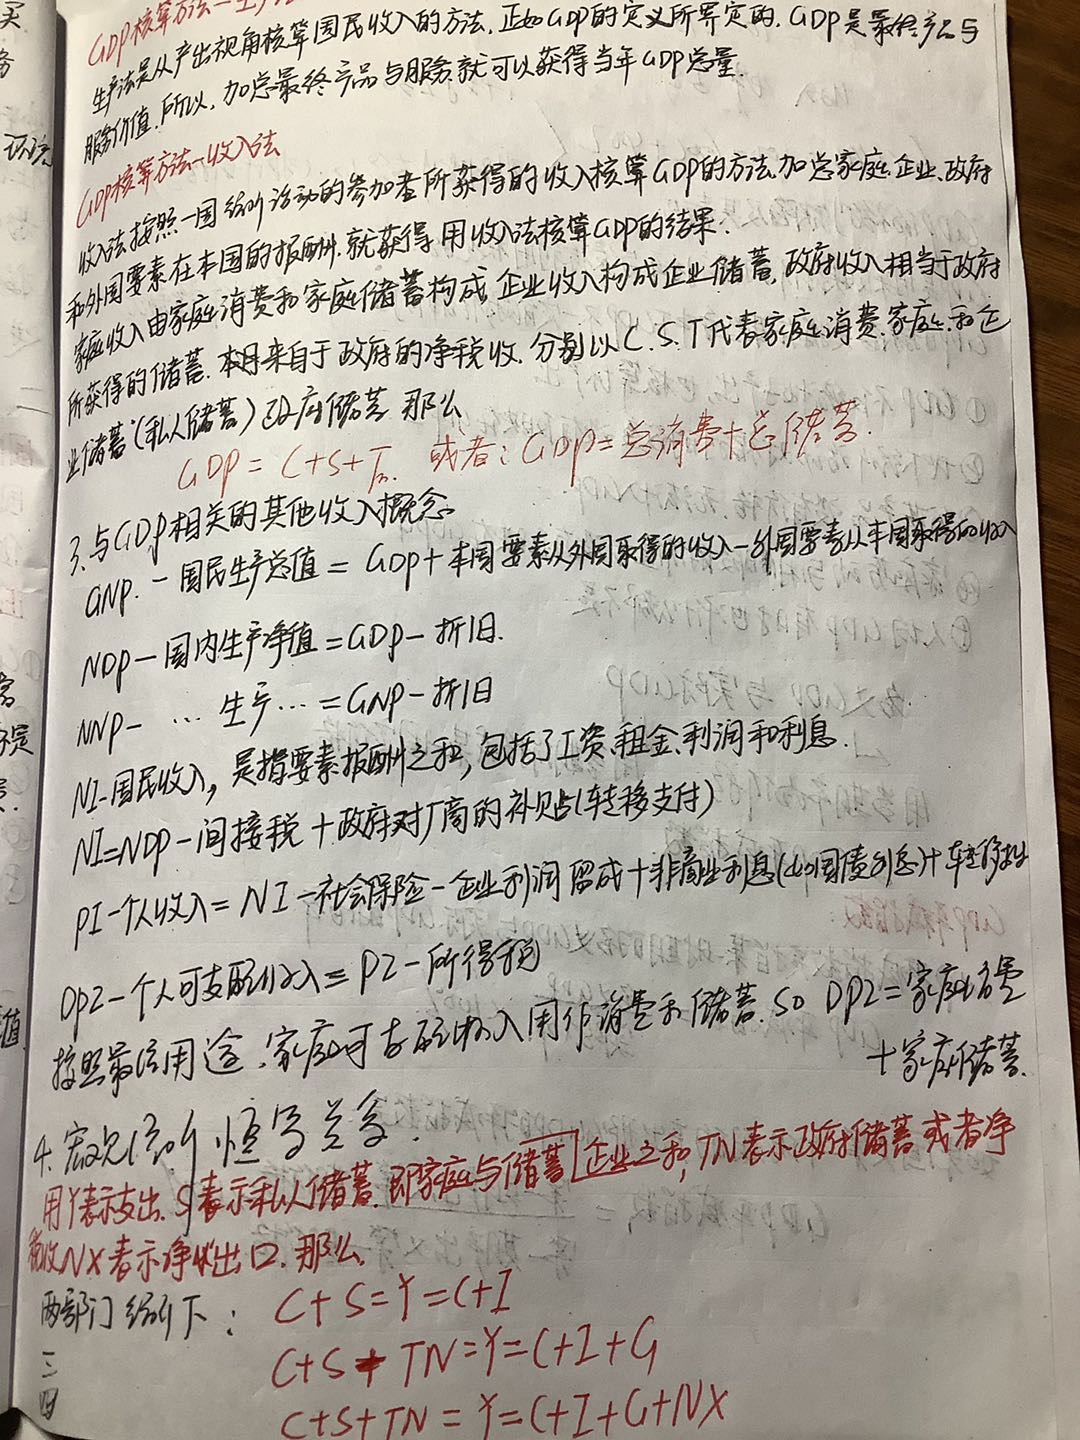 GDP核算方法一生产法
生产法是从产出视角核算国民收入的方法.正如GDP的定义所界定的.GDP是最终产品与
服务价值.所以,加总最终产品与服务.就可以获得当年GDP总量.
GDP核算方法一收入法
收入法按照一国经济活动的参加者所获得的收入核算GDP的方法.加总家庭.企业、政府
和外国要素在本国的报酬.就获得用收入法核算GDP的结果.
家庭收入由家庭消费和家庭储蓄构成.企业收入构成企业储蓄.政府收入相当于政府
所获得的储蓄.来自于政府的净税收.分别以C.S.T代表家庭消费.家庭和企
业储蓄(私人储蓄)政府储蓄.那么
GDP=C+S+Tn.或者:GDP=总消费+总储蓄.
3.与GDP相关的其他收入概念.
GNP.-国民生产总值=GDP+本国要素从外国取得的收入-外国要素从本国取得的收入
NDP-国内生产净值=GDP-折旧.
NNP- … 生产…=GNP-折旧
NI-国民收入,是指要素报酬之和,包括了工资.租金、利润和利息.
NI=NDP-间接税+政府对厂商的补贴(转移支付)
PI-个人收入=NI-社会保险-企业利润留成+非商业利息(如国债利息)+转移支付
DPI-个人可支配收入=PI-所得税
按照最终用途.家庭可支配收入用作消费和储蓄.so DPI=家庭消费
+家庭储蓄.
4.宏观经济恒等关系.
用Y表示支出.S表示私人储蓄.即家庭与储蓄企业之和,TN表示政府储蓄或者净
税收NX表示净出口.那么.
两部门经济下: C+S=Y=C+I
三 C+S+TN=Y=C+I+G
四 C+S+TN=Y=C+I+G+NX